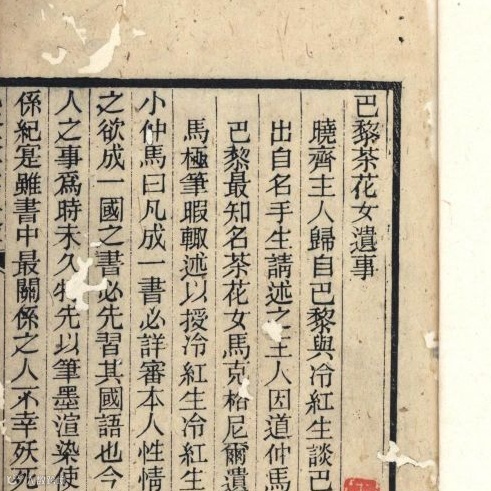 巴黎茶花女遺事
曉齊主人歸自巴黎與冷紅生談巴
出自名手生請述之主人因道仲馬
巴黎最知名茶花女馬克格尼爾遺
馬極筆暇輙述以授冷紅生冷紅生
小仲馬曰凡成一書必詳審本人性情
之欲成一國之書必先習其國語也今
人之事爲時未久特先以筆墨渲染使
係紀寔雖書中最關係之人不幸妖死